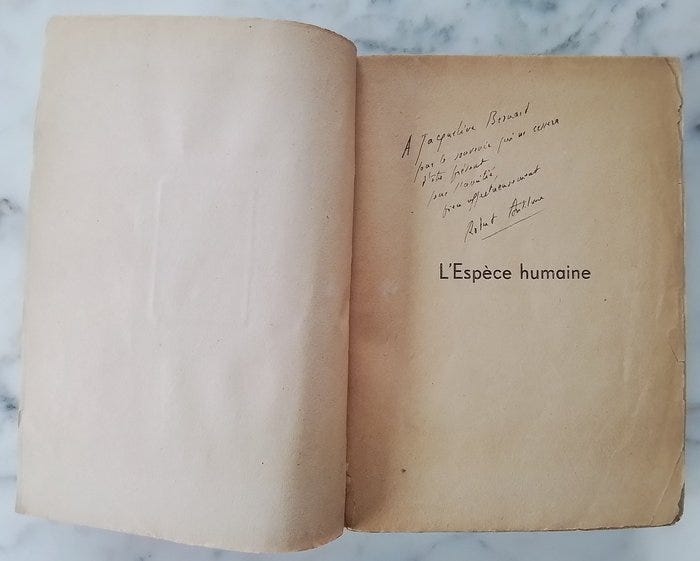 A Jacqueline Bernard
pour le souvenir qui ne cessera
d'être présent
pour l'amitié,
bien affectueusement
Robert Antelme
L'Espèce humaine